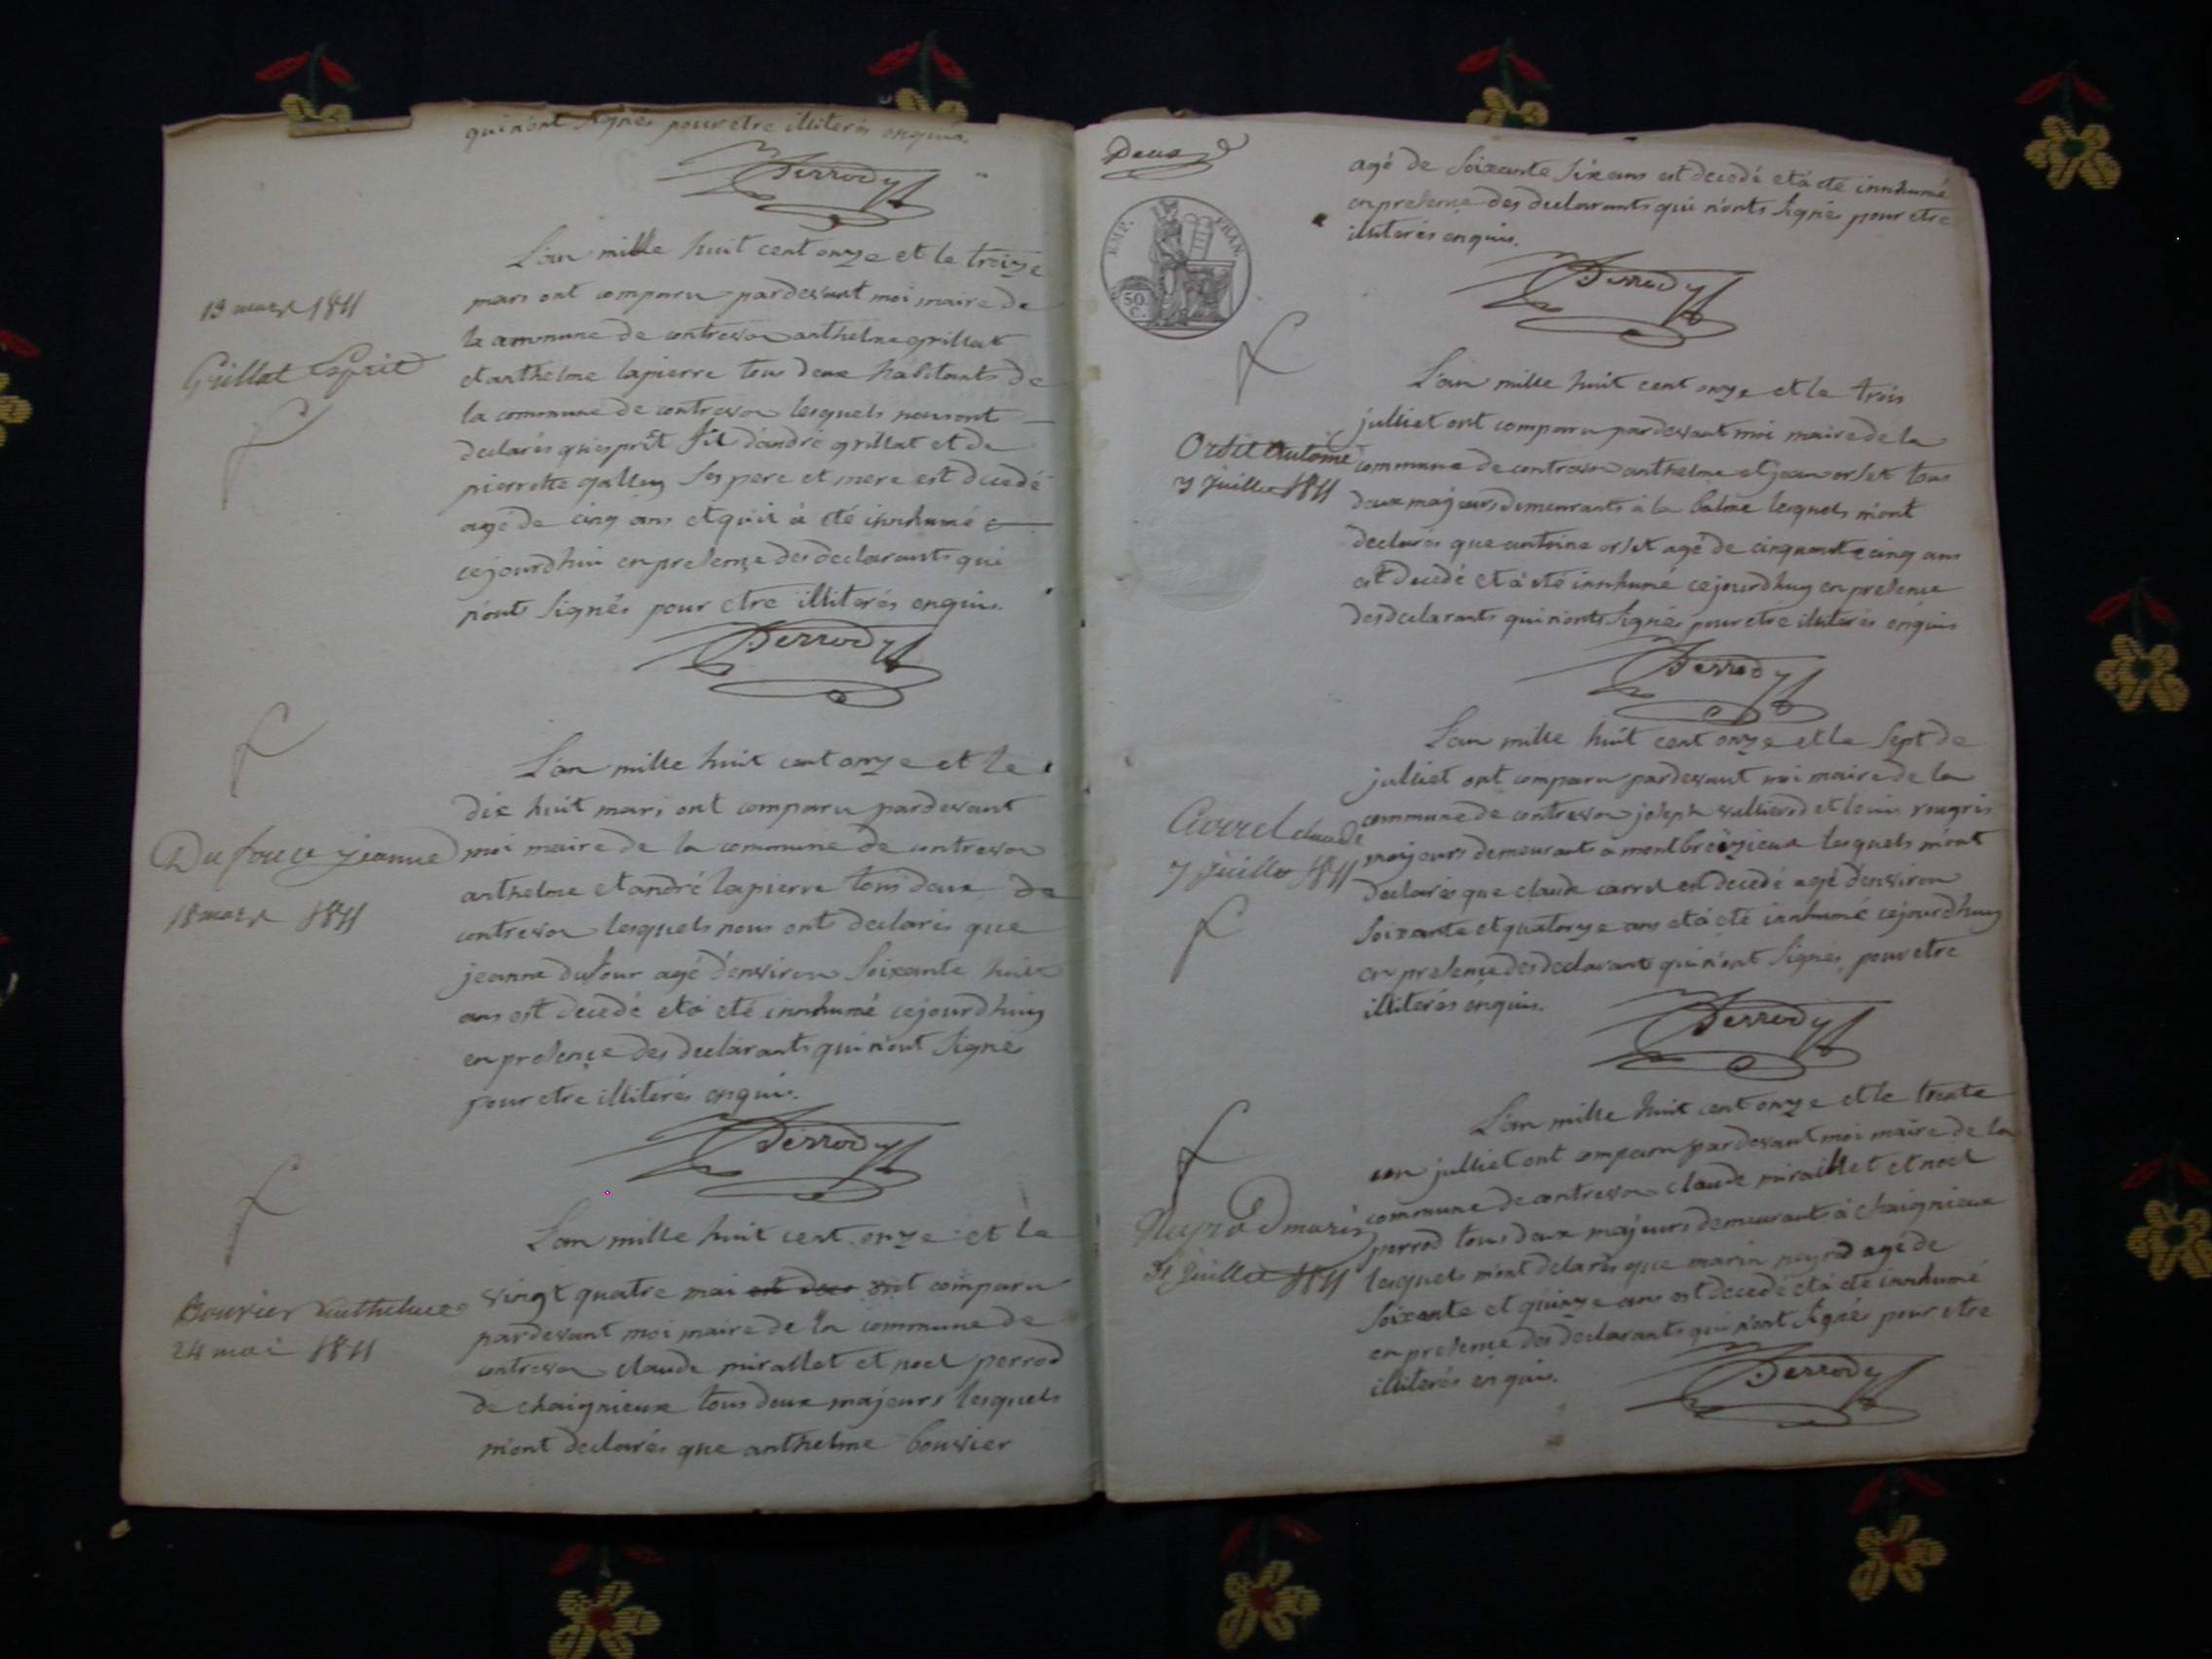 qui n'ont signés pour etre illiterés enquis.
Perrody
L'an mille huit cent onze et le treize
mars ont comparu pardevant moi maire de
la commune de contrevoz anthelme grillat
et anthelme lapierre tous deux habitants de
la commune de contrevoz lesquels nous ont
declarés qu'esprit fil d'andré grillat et de
pierrette gallay ses pere et mere est decedé
agé de cinq ans et qu'il à été innhumé
cejourdhui en presençe des declarants qui
n'ont signés pour etre illiterés enquis.
Perrody
13 mars 1811
Grillat Esprit
L'an mille huit cent onze et le
dix huit mars ont comparu pardevant
moi maire de la commune de contrevoz
anthelme et andré lapierre tous deux de
contrevoz lesquels nous ont declarés que
jeanne dufour agé d'environ soixante huit
ans est decedé et à eté innhumé cejourdhuy
en presençe des declarants qui n'ont signé
pour etre illiterés enquis.
Perrody
Dufour jeanne
18 mars 1811
L'an mille huit cent onze et le
vingt quatre mai ont comparu
pardevant moi maire de la commune de
contrevoz claude mirallet et noel perrod
de chaignieux tous deux majeurs lesquels
m'ont declarés que anthelme bouvier
Bouvier anthelme
24 mai 1811
Deux
EMP. FRAN.
50 C.
agé de soixante six ans est decedé et à eté innhumé
en presençe des declarants qui n'onts signés pour etre
illiterés enquis.
Perrody
L'an mille huit cent onze et le trois
julliet ont comparu pardevant moi maire de la
commune de contrevoz anthelme et jean orset tous
deux majeurs demeurants à la balme lesquels m'ont
declarés que antoine orset agé de cinquante cinq ans
est decedé et à eté innhumé cejourdhuy en presence
des declarants qui n'onts signés pour etre illiterés enquis
Perrody
Orset Antoine
3 juillet 1811
L'an mille huit cent onze et le sept de
julliet ont comparu pardevant moi maire de la
commune de contrevoz joseph vullierod et louis rougris
majeurs demeurants a montbreyzieux lesquels m'ont
declarés que claude carrel est decedé agé d'environ
soixante et quatorze ans et à eté innhumé cejourdhuy
en presençe des declarants qui n'ont signés pour etre
illiterés enquis.
Perrody
Carrel claude
7 juillet 1811
L'an mille huit cent onze et le trente
un julliet ont comparu pardevant moi maire de la
commune de contrevoz claude miraillet et noel
perrod tous deux majeurs demeurants à chaignieux
lesquels m'ont delarés que marin peyrod agé de
soixante et quinze ans est decedé et à eté innhumé
en presençe des declarants qui n'ont signés pour etre
illiterés enquis.
Perrody
31 juillet 1811